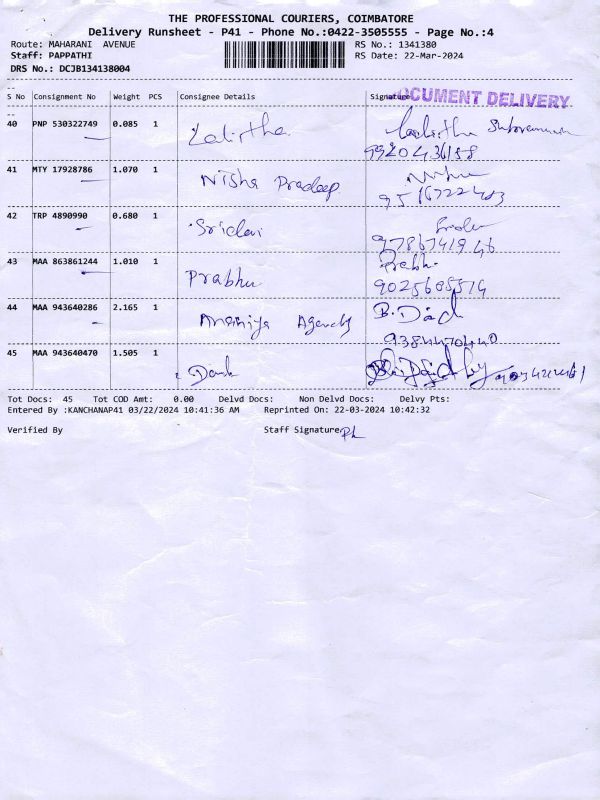 THE PROFESSIONAL COURIERS, COIMBATORE
Delivery Runsheet - P41 - Phone No.:0422-3505555 - Page No.:4
Route: MAHARANI AVENUE RS No.: 1341380
Staff: PAPPATHI RS Date: 22-Mar-2024
DRS No.: DCJB134138004
S No Consignment No Weight PCS Consignee Details Signature DOCUMENT DELIVERY
40 PNP 530322749 0.085 1 Lalitha Lalitha
9920436158
41 MTY 17928786 1.070 1 Nisha Pradeep
42 TRP 4890990 0.680 1 Sridevi
9786741946
43 MAA 863861244 1.010 1 Prabhu Prabhu
9025605514
44 MAA 943640286 2.165 1 Agency B. David
9384470440
45 MAA 943640470 1.505 1
Tot Docs: 45 Tot COD Amt: 0.00 Delvd Docs: Non Delvd Docs: Delvy Pts:
Entered By :KANCHANAP41 03/22/2024 10:41:36 AM Reprinted On: 22-03-2024 10:42:32
Verified By Staff Signature